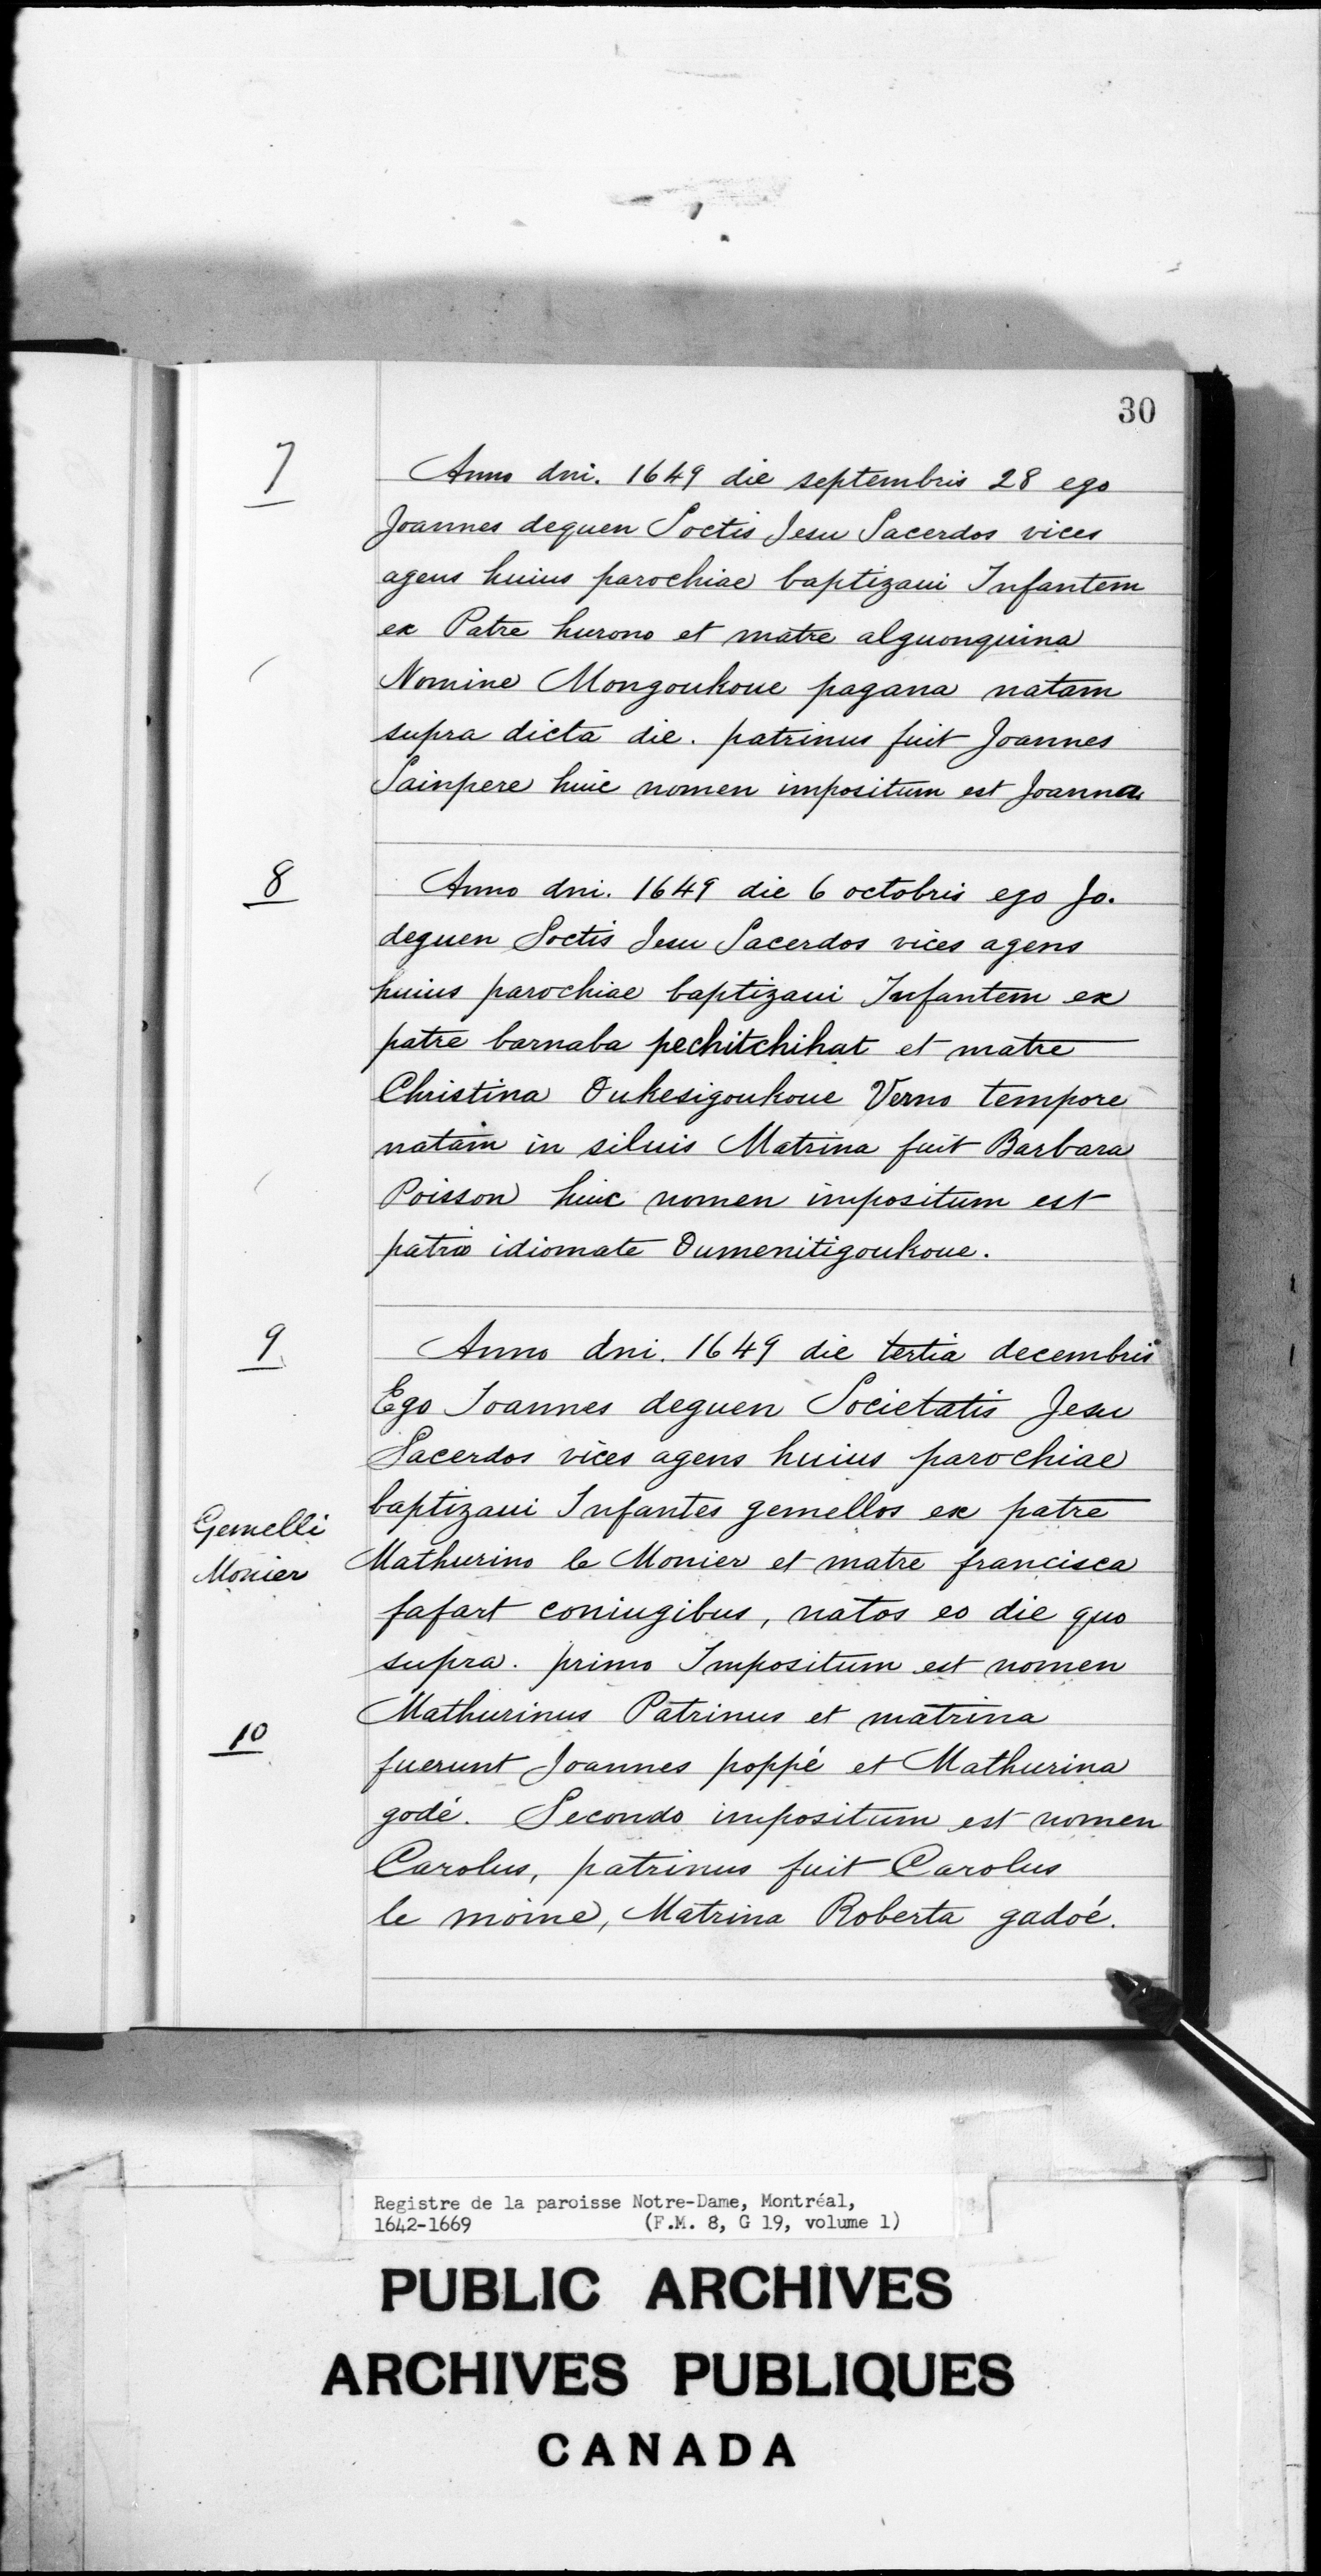 30
7
Anno dni. 1649 die septembris 28 ego
Joannes dequen Soctis Jesu Sacerdos vices
agens huius parochiae baptizaui Infantem
ex Patre hurono et matre alguonquina
Nomine Mongoukoue pagana natam
supra dicta die. patrinus fuit Joannes
Sainpere huic nomen impositum est Joanna
8
Anno dni. 1649 die 6 octobris ego Jo.
dequen Soctis Jesu Sacerdos vices agens
huius parochiae baptizaui Infantem ex
patre barnaba pechitchihat et matre
Christina Oukesigoukoue Verno tempore
natam in siluis Matrina fuit Barbara
Poisson huic nomen impositum est
patrio idiomate Oumenitigoukoue.
9
Anno dni. 1649 die tertia decembris
Ego Joannes dequen Societatis Jesu
Sacerdos vices agens huius parochiae
baptizaui Infantes gemellos ex patre
Gemelli
Monier
Mathurino le Monier et matre francisca
fafart coniugibus, natos eo die quo
supra. primo Impositum est nomen
Mathurinus Patrinus et matrina
10
fuerunt Joannes poppé et Mathurina
godé. Secondo impositum est nomen
Carolus, patrinus fuit Carolus
le moine, Matrina Roberta gadoé.
Registre de la paroisse Notre-Dame, Montréal,
1642-1669 (F.M. 8, G 19, volume 1)
PUBLIC ARCHIVES
ARCHIVES PUBLIQUES
CANADA